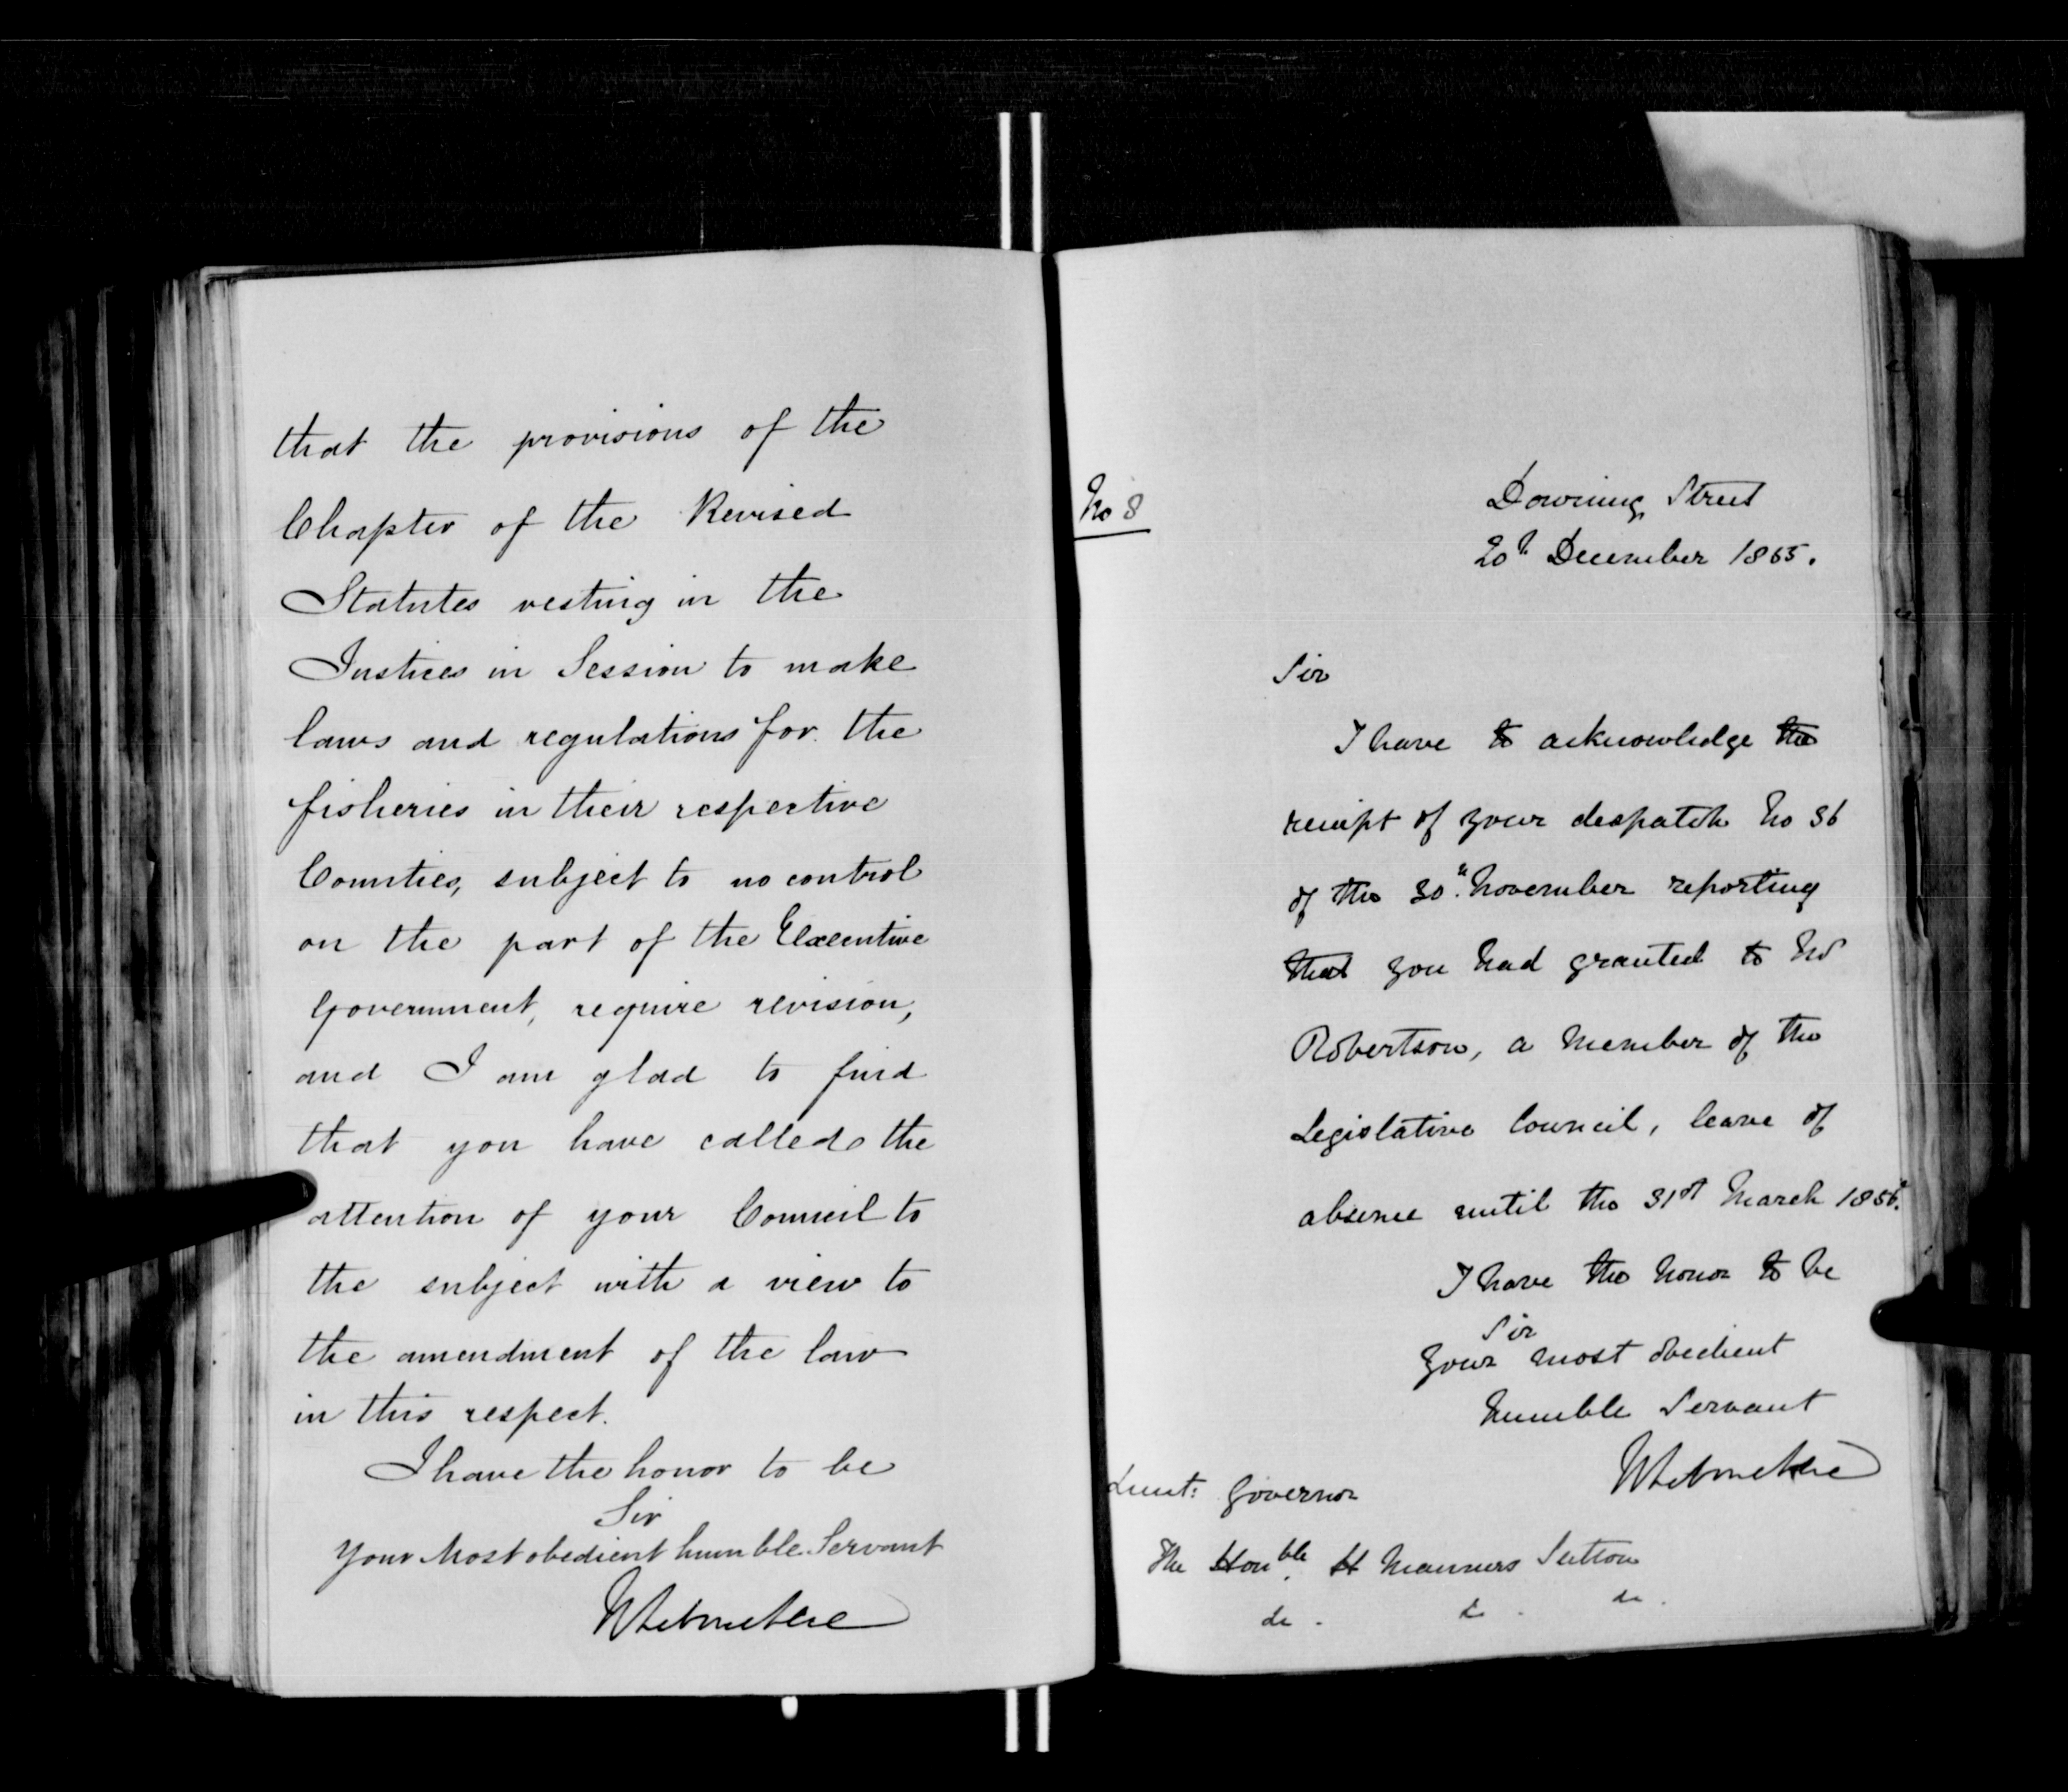 that the provisions of the
Chapter of the Revised
Statutes vesting in the
Justices in Session to make
laws and regulations for the
fisheries in their respective
Counties, subject to no control
on the part of the Executive
Government, require revision,
and I am glad to find
that you have called the
attention of your Council to
the subject with a view to
the amendment of the law
in this respect.
I have the honor to be
Sir
Your Most obedient humble Servant
No 8
Downing Street
20th December 1855.
Sir
I have to acknowledge the
receipt of your despatch No 36
of the 30th November reporting
that you had granted to Mr
Robertson, a Member of the
Legislative Council, leave of
absence until the 31st March 1856.
I have the honor to be
Sir
Your most obedient
humble Servant
Lieut: Governor
The Honble. H Manners Sutton
&c. &c. &c.